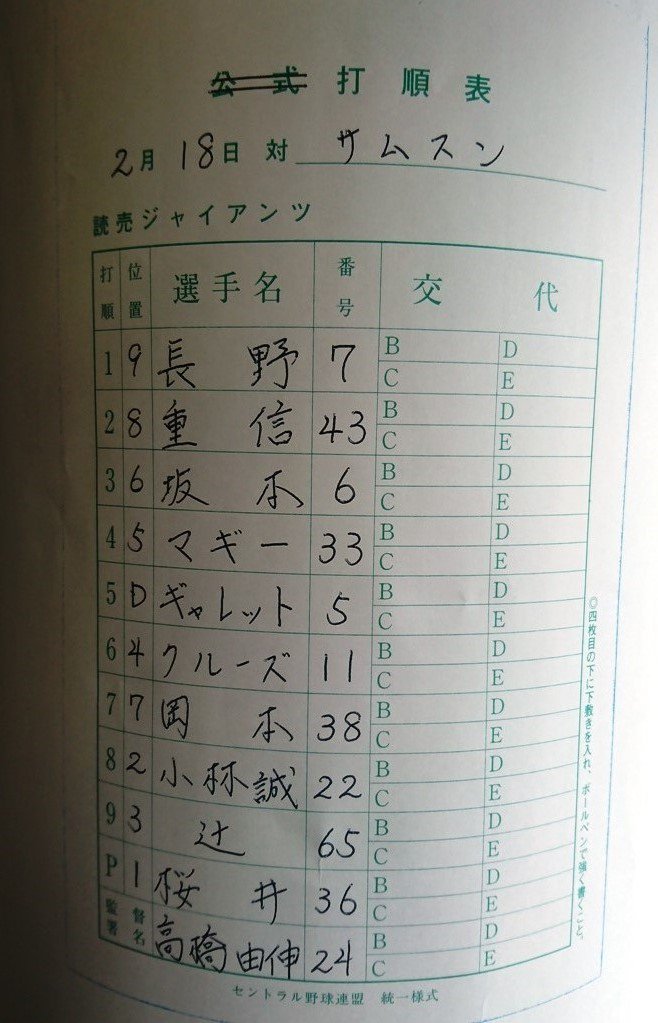 公式打順表
2月18日 対 サムスン
読売ジャイアンツ
打順 位置 選手名 番号 交代
1 9 長野 7 B D C E
2 8 重信 43 B D C E
3 6 坂本 6 B D C E
4 5 マギー 33 B D C E
5 D ギャレット 5 B D C E
6 4 クルーズ 11 B D C E
7 7 岡本 38 B D C E
8 2 小林誠 22 B D C E
9 3 辻 65 B D C E
P 1 桜井 36 B D C E
監督署名 高橋由伸 24 B D C E
◎四枚目の下に下敷きを入れ、ボールペンで強く書くこと。
セントラル野球連盟 統一様式